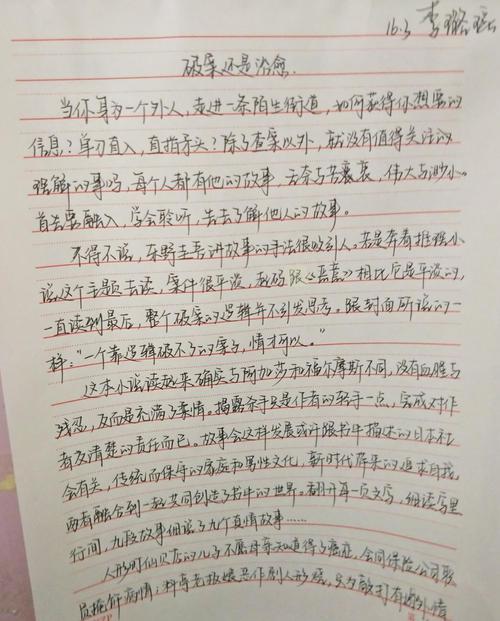 16.3 李璐瑶
破案还是治愈.
当你身为一个外人，走进一条陌生街道，如何获得你想要的
信息？单刀直入，直指矛头？除了查案以外，就没有值得关注的
理解的事吗，每个人都有他的故事，无奈与苦衷，伟大与渺小。
首先要融入，学会聆听，先去了解他人的故事。
不得不说，东野圭吾讲故事的手法很吸引人。若是奔着推理小
说这个主题去读，案件很平淡，起码跟《恶意》相比它是平淡的，
一直读到最后，整个破案的逻辑并不引发思考。跟封面所说的一
样：“一个靠逻辑破不了的案子，情才可以。”
这本小说读起来确实与阿加莎和福尔摩斯不同，没有血腥与
残忍，反而是充满了柔情。揭露杀手只是作者的轻手一点，完成对作
者交清楚的责任而已。故事会这样发展或许跟书中描述的日本社
会有关，传统而保守的家庭和男性文化，新时代降来的追求自我，
两者融合到一起共同创造了书中的世界。翻开每一页文字，细读字里
行间，九段故事细说了九个真情故事……
人形町仙贝店的儿子不愿母亲知道得了癌症，合同保险公司职
员掩饰病情；料亭老板娘恶作剧人形烧，只为敲打有婚外情